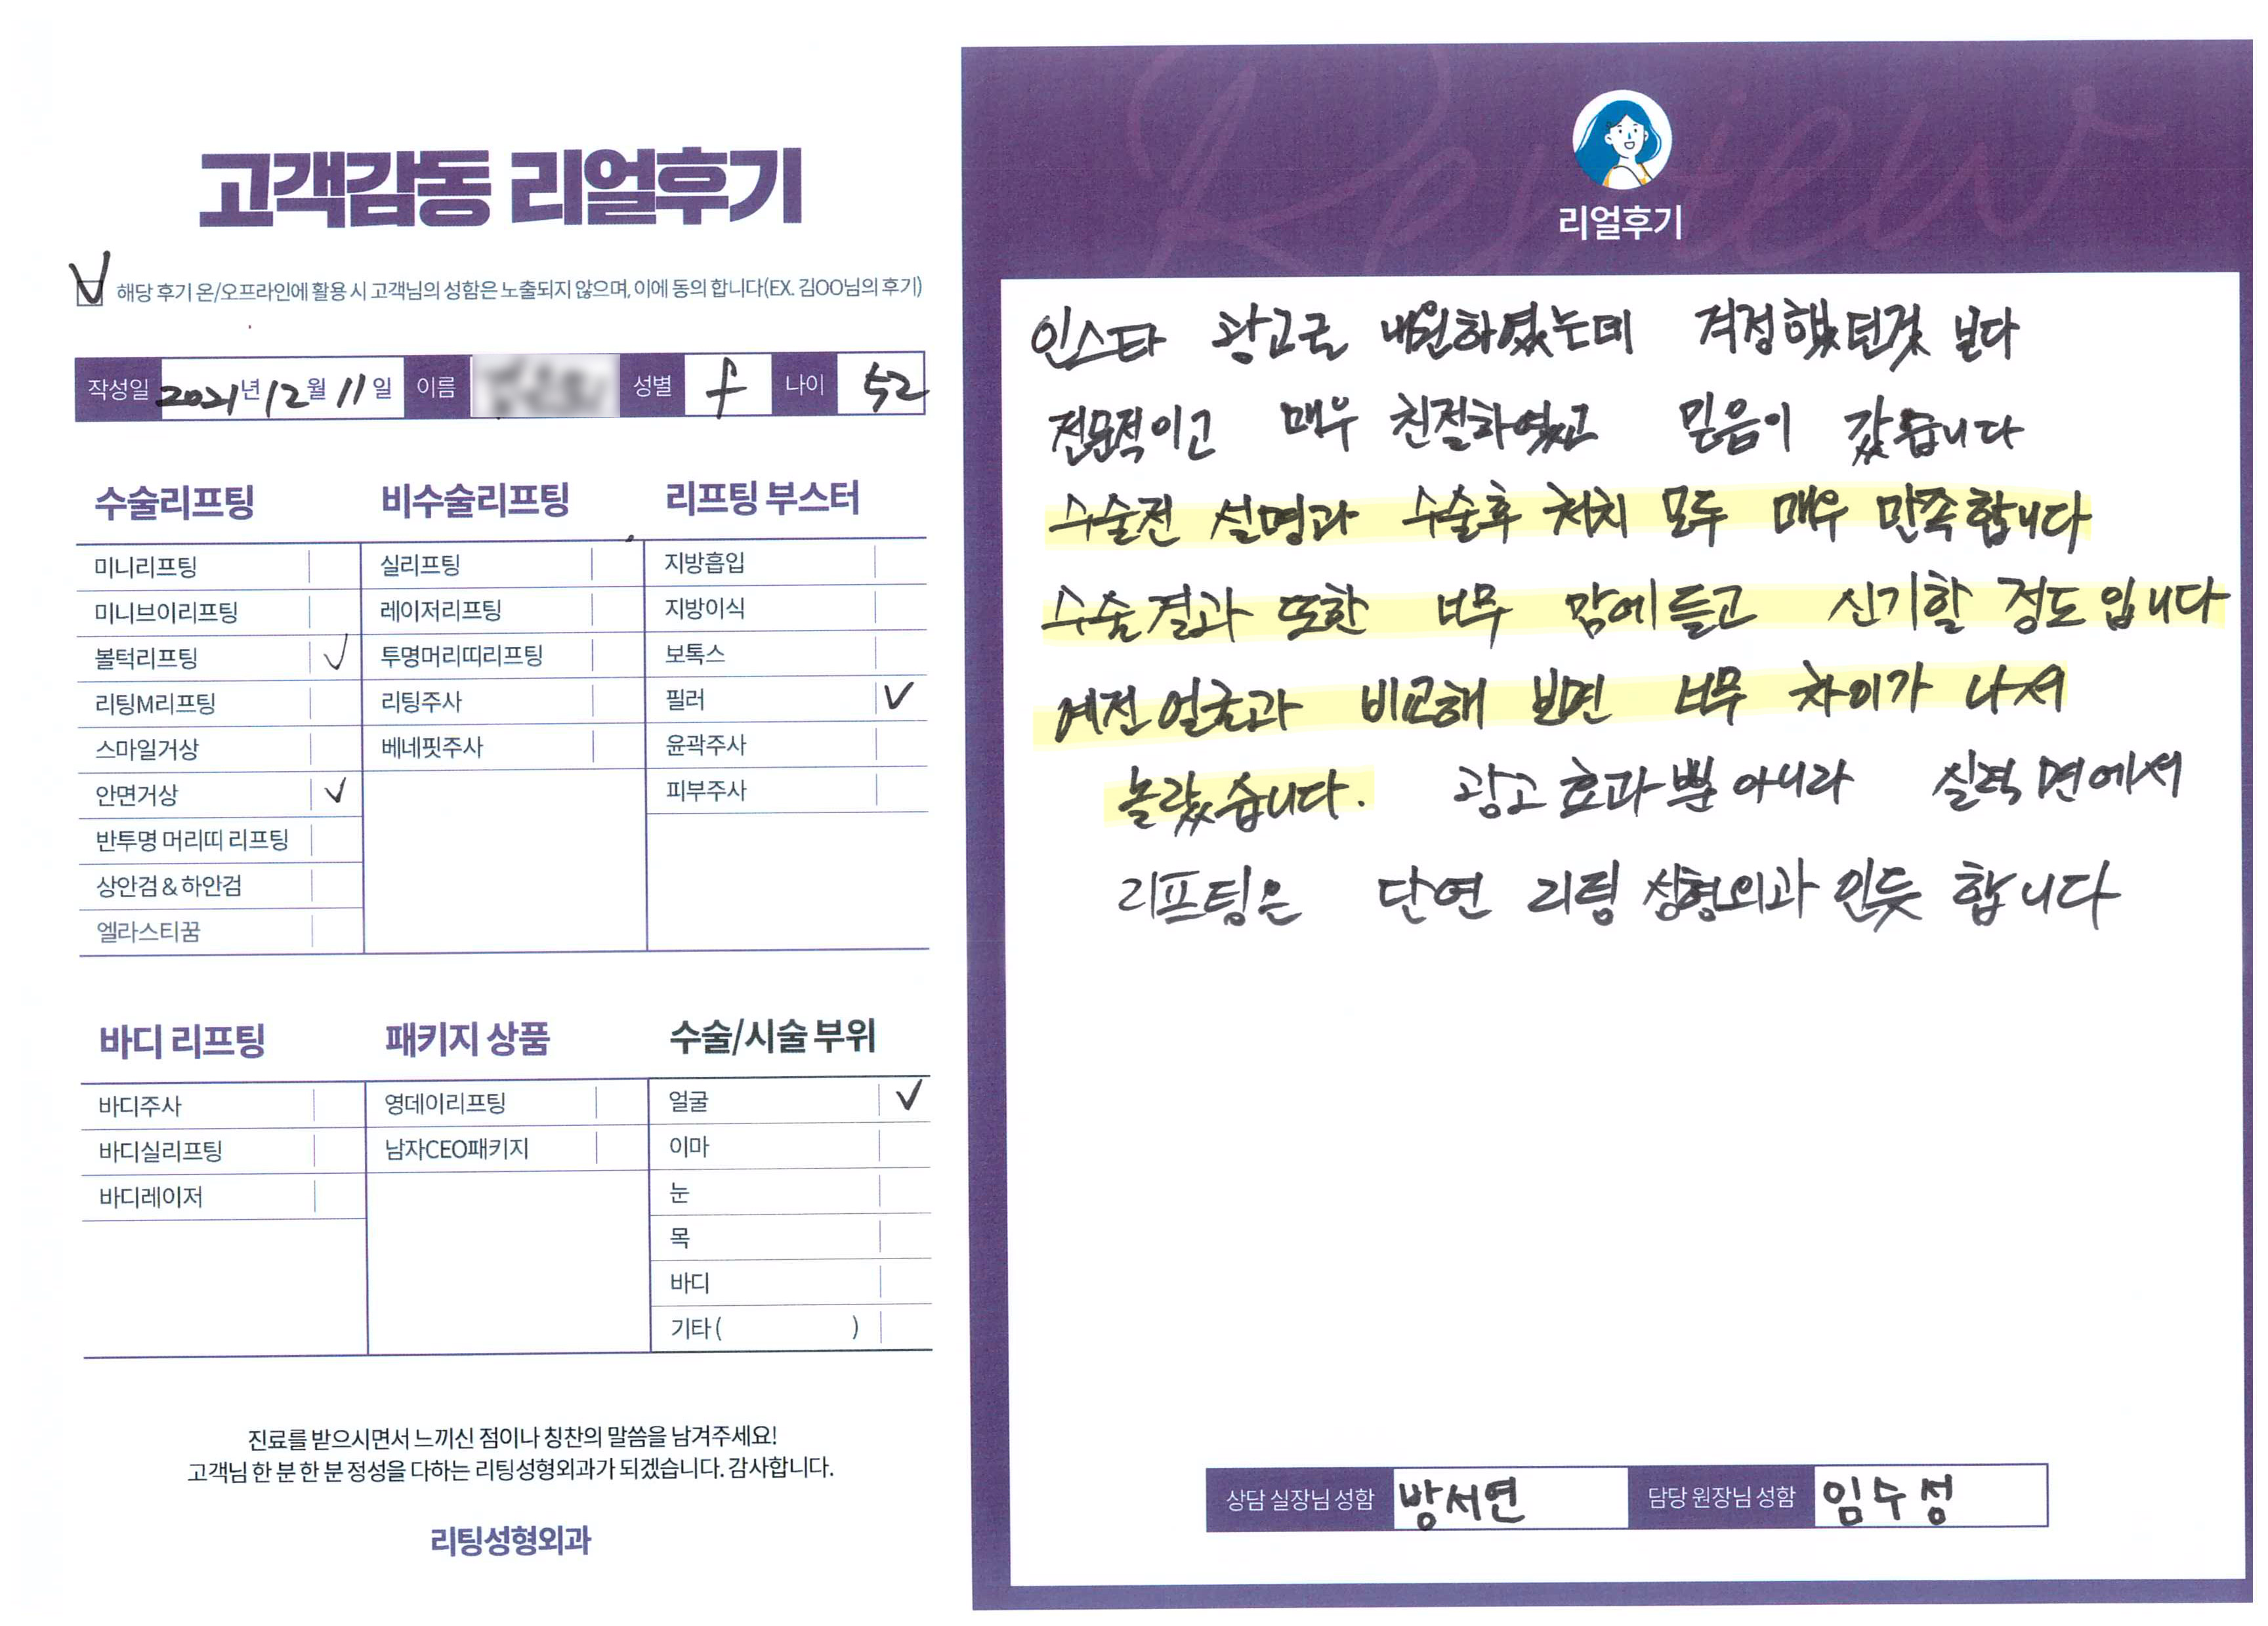 고객감동 리얼후기
해당 후기 온/오프라인에 활용 시 고객님의 성함은 노출되지 않으며, 이에 동의 합니다(EX. 김OO님의 후기)
작성일 2021년 12월 11일 이름 성별 f 나이 52
수술리프팅
미니리프팅
미니브이리프팅
볼턱리프팅 ✓
리팅M리프팅
스마일거상
안면거상 ✓
반투명 머리띠 리프팅
상안검 & 하안검
엘라스티꿈
비수술리프팅
실리프팅
레이저리프팅
투명머리띠리프팅
리팅주사
베네핏주사
리프팅 부스터
지방흡입
지방이식
보톡스
필러 ✓
윤곽주사
피부주사
바디 리프팅
바디주사
바디실리프팅
바디레이저
패키지 상품
영데이리프팅
남자CEO패키지
수술/시술 부위
얼굴 ✓
이마
눈
목
바디
기타 ( )
진료를 받으시면서 느끼신 점이나 칭찬의 말씀을 남겨주세요!
고객님 한 분 한 분 정성을 다하는 리팅성형외과가 되겠습니다. 감사합니다.
리팅성형외과
Review
리얼후기
인스타 광고로 내원하였는데 걱정했던것 보다
전문적이고 매우 친절하였고 믿음이 갔습니다
수술전 설명과 수술후 처치 모두 매우 만족합니다
수술결과 또한 너무 맘에들고 신기할 정도입니다
예전얼굴과 비교해 보면 너무 차이가 나서
놀랐습니다. 광고 효과뿐 아니라 실력 면에서
리프팅은 단연 리팅 성형외과 인듯 합니다
상담 실장님 성함 방서연 담당 원장님 성함 임수성